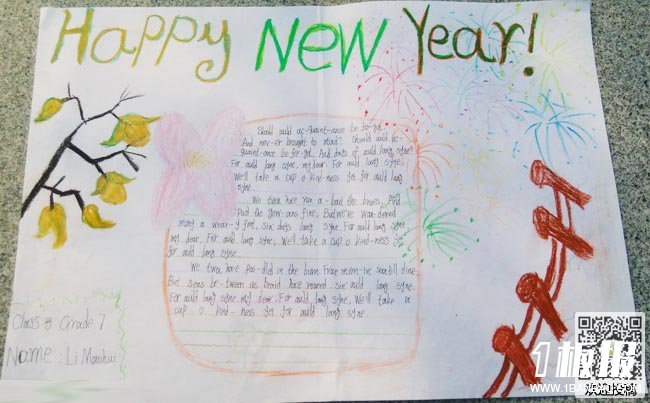 Happy New Year!
Should auld ac-quaint-ance be for-got.
And nev-er brought to mind? Should auld ac-
quaint-ance be for-got. And days of auld lang syne?
For auld lang syne, my dear. For auld lang syne.
We'll take a cup o kind-ness yet for auld lang
syne.
We twa have run a-bout the braes, And
pu'd the gow-ans fine, But we've wan-dered
many a wear-y foot, sin' auld lang syne. For auld lang syne,
my dear. For auld lang syne, We'll take a cup o kind-ness yet
for auld lang syne.
We twa have pai-dled in the burn Frae morn-in sun till dine
But seas be-tween us braid have roared sin' auld lang syne.
For auld lang syne my dear. For auld lang syne. We'll take a
cup o kind-ness yet for auld lang syne
Class 3 Grade 7
Name: Li
1板报
WWW.1BANBAO.COM
欢迎投稿